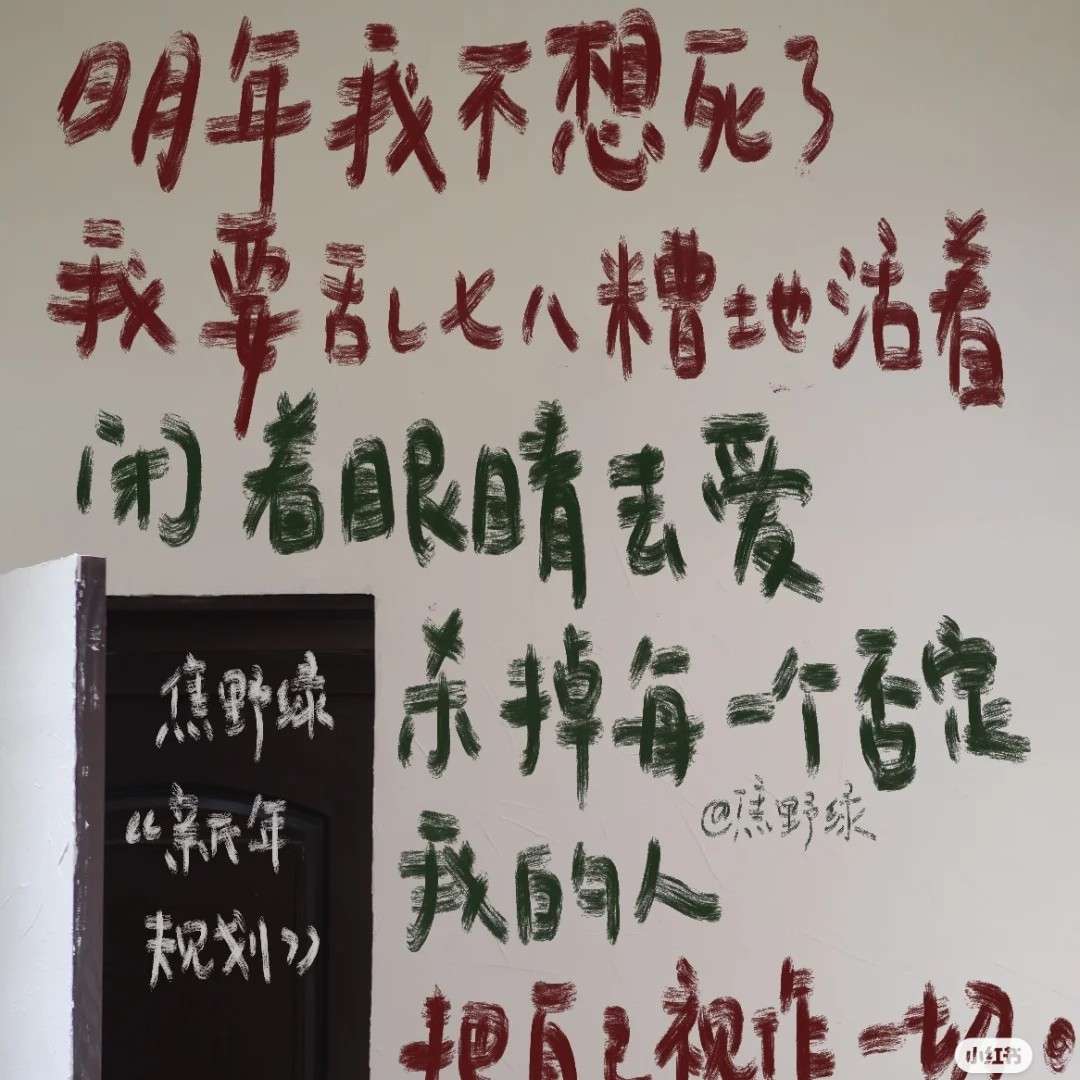 明年我不想死了
我要乱七八糟地活着
闭着眼睛去爱
杀掉每一个否定
我的人
把自己视作一切。
焦野绿
“新年
规划”
@焦野绿
小红书